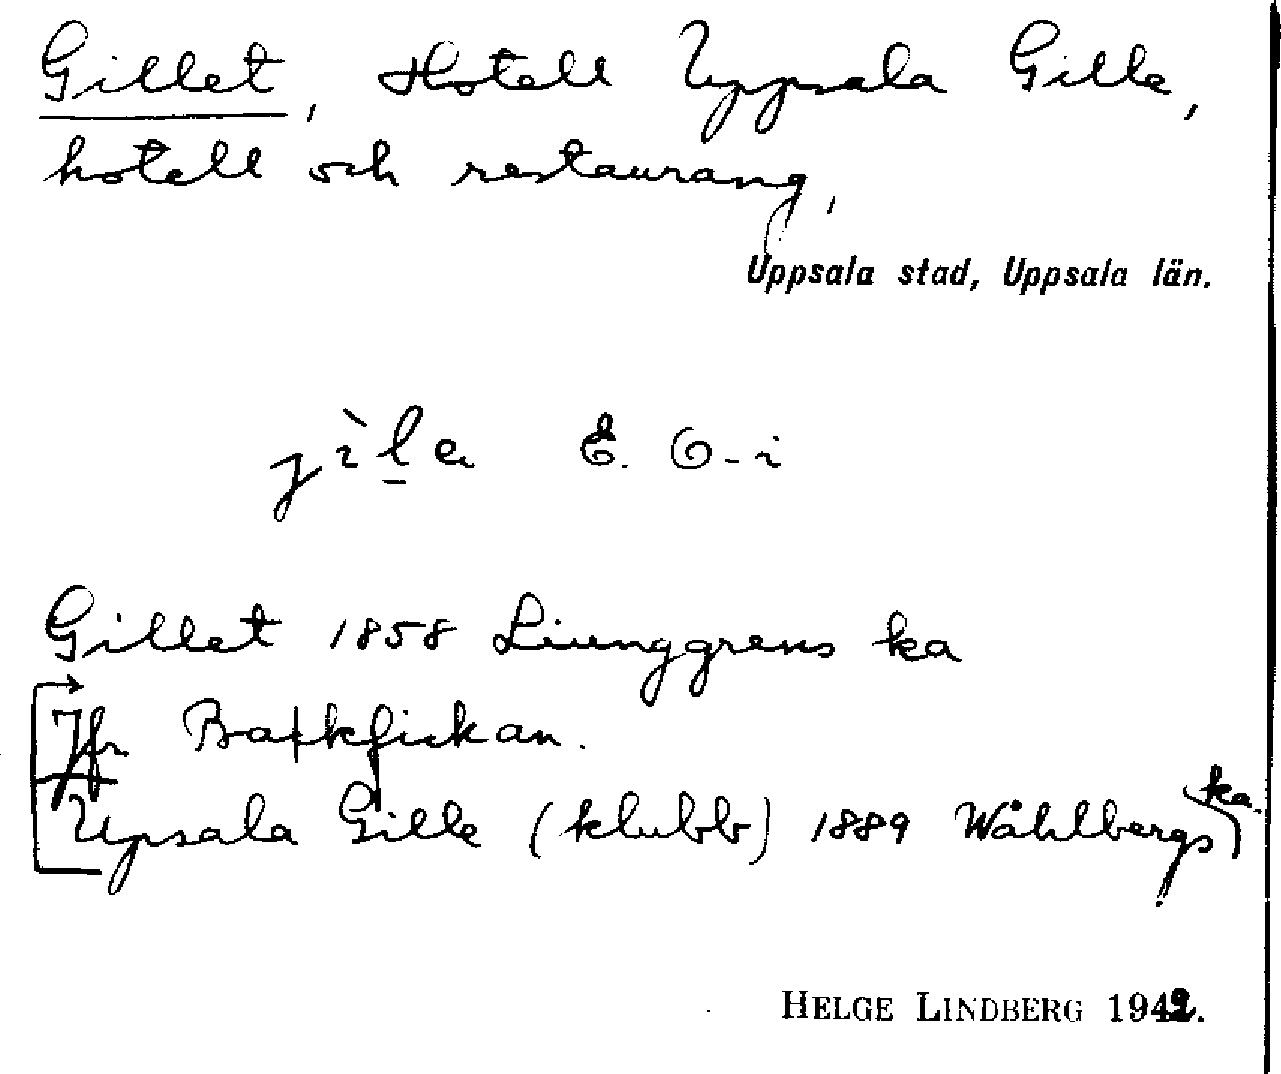 Gillet, Hotell Uppsala Gille,
hotell och restaurang,
Uppsala stad, Uppsala län.
E. O-i
Gillet 1858 Liunggrens ka
Jfr Bakfickan.
Upsala Gille (klubb) 1889 Wåhlbergs ka.
HELGE LINDBERG 1942.